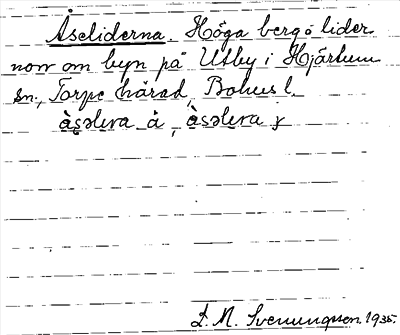 Åseliderna. Höga berg o lider
norr om byn på Utby i Hjärtum
sn., Torpe härad, Bohusl.
àsəlɩra å, àsəlɩra
S. M. Svenungsson. 1935.